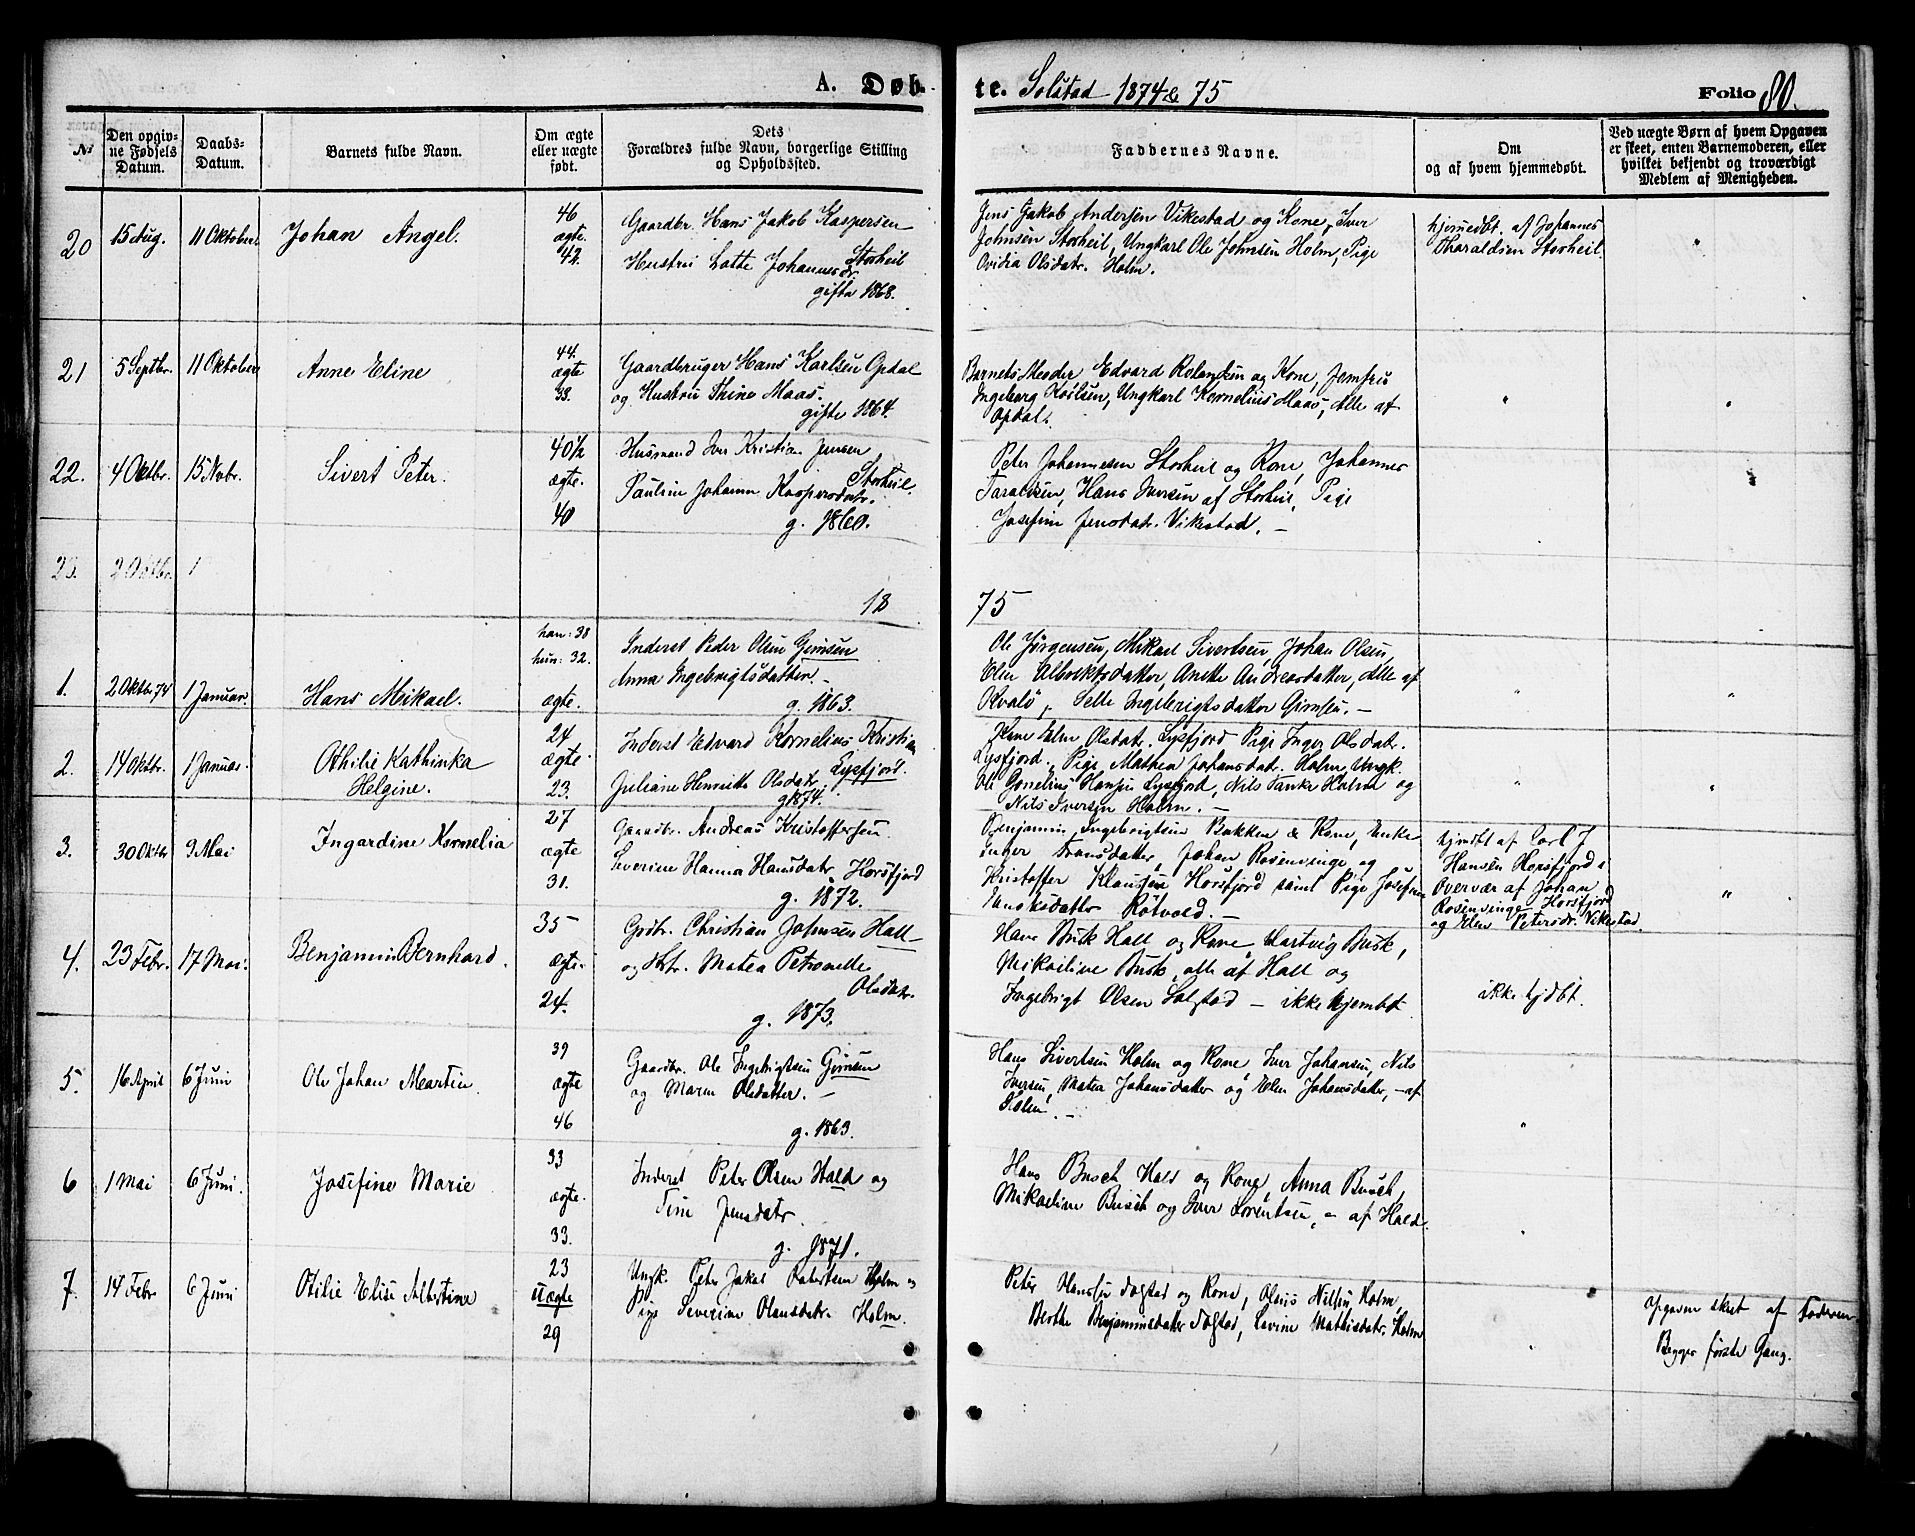 A. Døb-
te. Solstad 1874 & 75
Folio 80.
No
Den opgiv-
ne Fødsels
Datum.
Daabs-
Datum.
Barnets fulde Navn.
Om ægte
eller uægte
født.
Dets
Forældres fulde Navn, borgerlige Stilling
og Opholdssted.
Faddernes Navne.
Om
og af hvem hjemmedøbt.
Ved uægte Børn af hvem Opgaven
er skeet, enten Barnemoderen, eller
hvilket bekjendt og troværdigt
Medlem af Menigheden.
20 15 Aug. 11 Oktober Johan Angel.
46
ægte
42.
Gaardbr. Hans Jakob Kaspersen
Storheil
Hustru Lotte Johannesdr.
gifte 1868.
Jens Jakob Andersen Vikestad og Kone, Iver
Johnsen Storheil, Ungkarl Ole Johnsen Holm, Pige
Ovidia Olsdatr. Holm.
hjemedbt. af Johannes
Tharaldsen Storheil.
21 5 Septbr. 11 Oktober Anne Eline
44.
ægte
33.
Gaardbruger Hans Karlsen Opdal
og Hustru Thine Maas.
gifte 1864.
Barnets Moder Edvard Rolandsen og Kone, Jomfru
Ingeborg Karlsen, Ungkarl Kornelius Maas, Alle af
Opdal.
22. 4 Oktbr. 15 Nvbr. Sivert Peter.
40 1/2
ægte.
40
Husmand Iver Kristian Jensen
Storheil.
Pauline Johanna Kaspersdatr.
g. 1860.
Peter Johannesen Storheil og Kone, Johannes
Taraldsen, Hans Iversen af Storheil, Pige
Josefine Jensdatr. Vikestad. –
23. 2 Oktbr. 1
18 75
1. 2 Oktbr 74 1 Januar. Hans Mikael.
han: 38
hun: 32.
ægte.
Inderst Peder Olsen Gimsen
Anna Ingebrigtsdatter. –
g. 1863.
Ole Jørgensen, Mikael Sivertsen, Johan Olsen,
Elen Albrektsdatter, Anette Andreasdatter, Alle af
Kvalø, Ingebrigtsdatter Gimsen. –
2. 14 Oktbr. 1 Januar. Othilie Kathinka
Helgine.
24
ægte.
23.
Inderst Edvard Kornelius Kristian
Lysfjord.
Juliane Henritte Olsdatr.
g 1874.
Kone Elen Olsdatr. Lysfjord Pige Inger Olsdatr.
Lysfjord. Pige Mathea Johansdatr. Holm, Ungk.
Ole Cornelius Hansen Lysfjord, Nils Tanke Holm og
Nils Iversen Holm. –
3. 30 Oktbr 9 Mai Ingardine Kornelia
27
ægte
31.
Gaardbr. Andreas Kristoffersen
Severine Hanna Hansdatr. Horsfjord
g. 1872.
Benjamin Ingebrigtsen Bakken & Kone, Enke
Inger Fransdatter, Johan Rosenvinge og
Kristoffer Klausen Horsfjord samt Pige Josefine
Enoksdatter Røtvold. –
hjmdbt af Carl J
Hansen Horsfjord i
Overvær af Johan
Rosenvinge Horsfjord
og Elen Petersdr. Vikestad.
4. 23 Febr. 17 Mai. Benjamin Bernhard.
35
ægte.
24.
Grdbr. Christian Johnsen Hall
og Hstr. Matea Petronelle
Olsdatr.
g. 1873.
Hans Busk Hall og Kone, Hartvig Busk,
Mikaeline Busk, alle af Hall og
Ingebrigt Olsen Solstad – ikke hjembt
ikke hjdbt.
5. 16 April 6 Juni Ole Johan Martin.
39
ægte
46
Gaardbr. Ole Ingebrigtsen Gimsen
og Maren Olsdatter. –
g. 1863.
Hans Sivertsen Holm og Kone, Iver Johansen, Nils
Iversen, Matea Johansdatter og Elen Johansdatter, – af
Holm. –
6 1 Mai 6 Juni. Josefine Marie
33
ægte.
33.
Inderst Peter Olsen Hald og
Tine Jensdatr.
g. 1871.
Hans Busch Hald og Kone, Anna Busch,
Mikaeline Busch og Iver Lorentsen, – af Hald.
7. 14 Febr 6 Juni Otilie Elise Albertine
23
uægte
29
Ungk. Peter Jakob Robertsen Holm og
Pige Severine Olausdatr. Holm.
Peter Hansen Dogstad og Kone, Olaus Nilsen Holm,
Berthe Benjaminsdatter Dogstad, Lovine Mathisdatr. Holm
Opgaven skeet af Faderen
Begges første Gang.